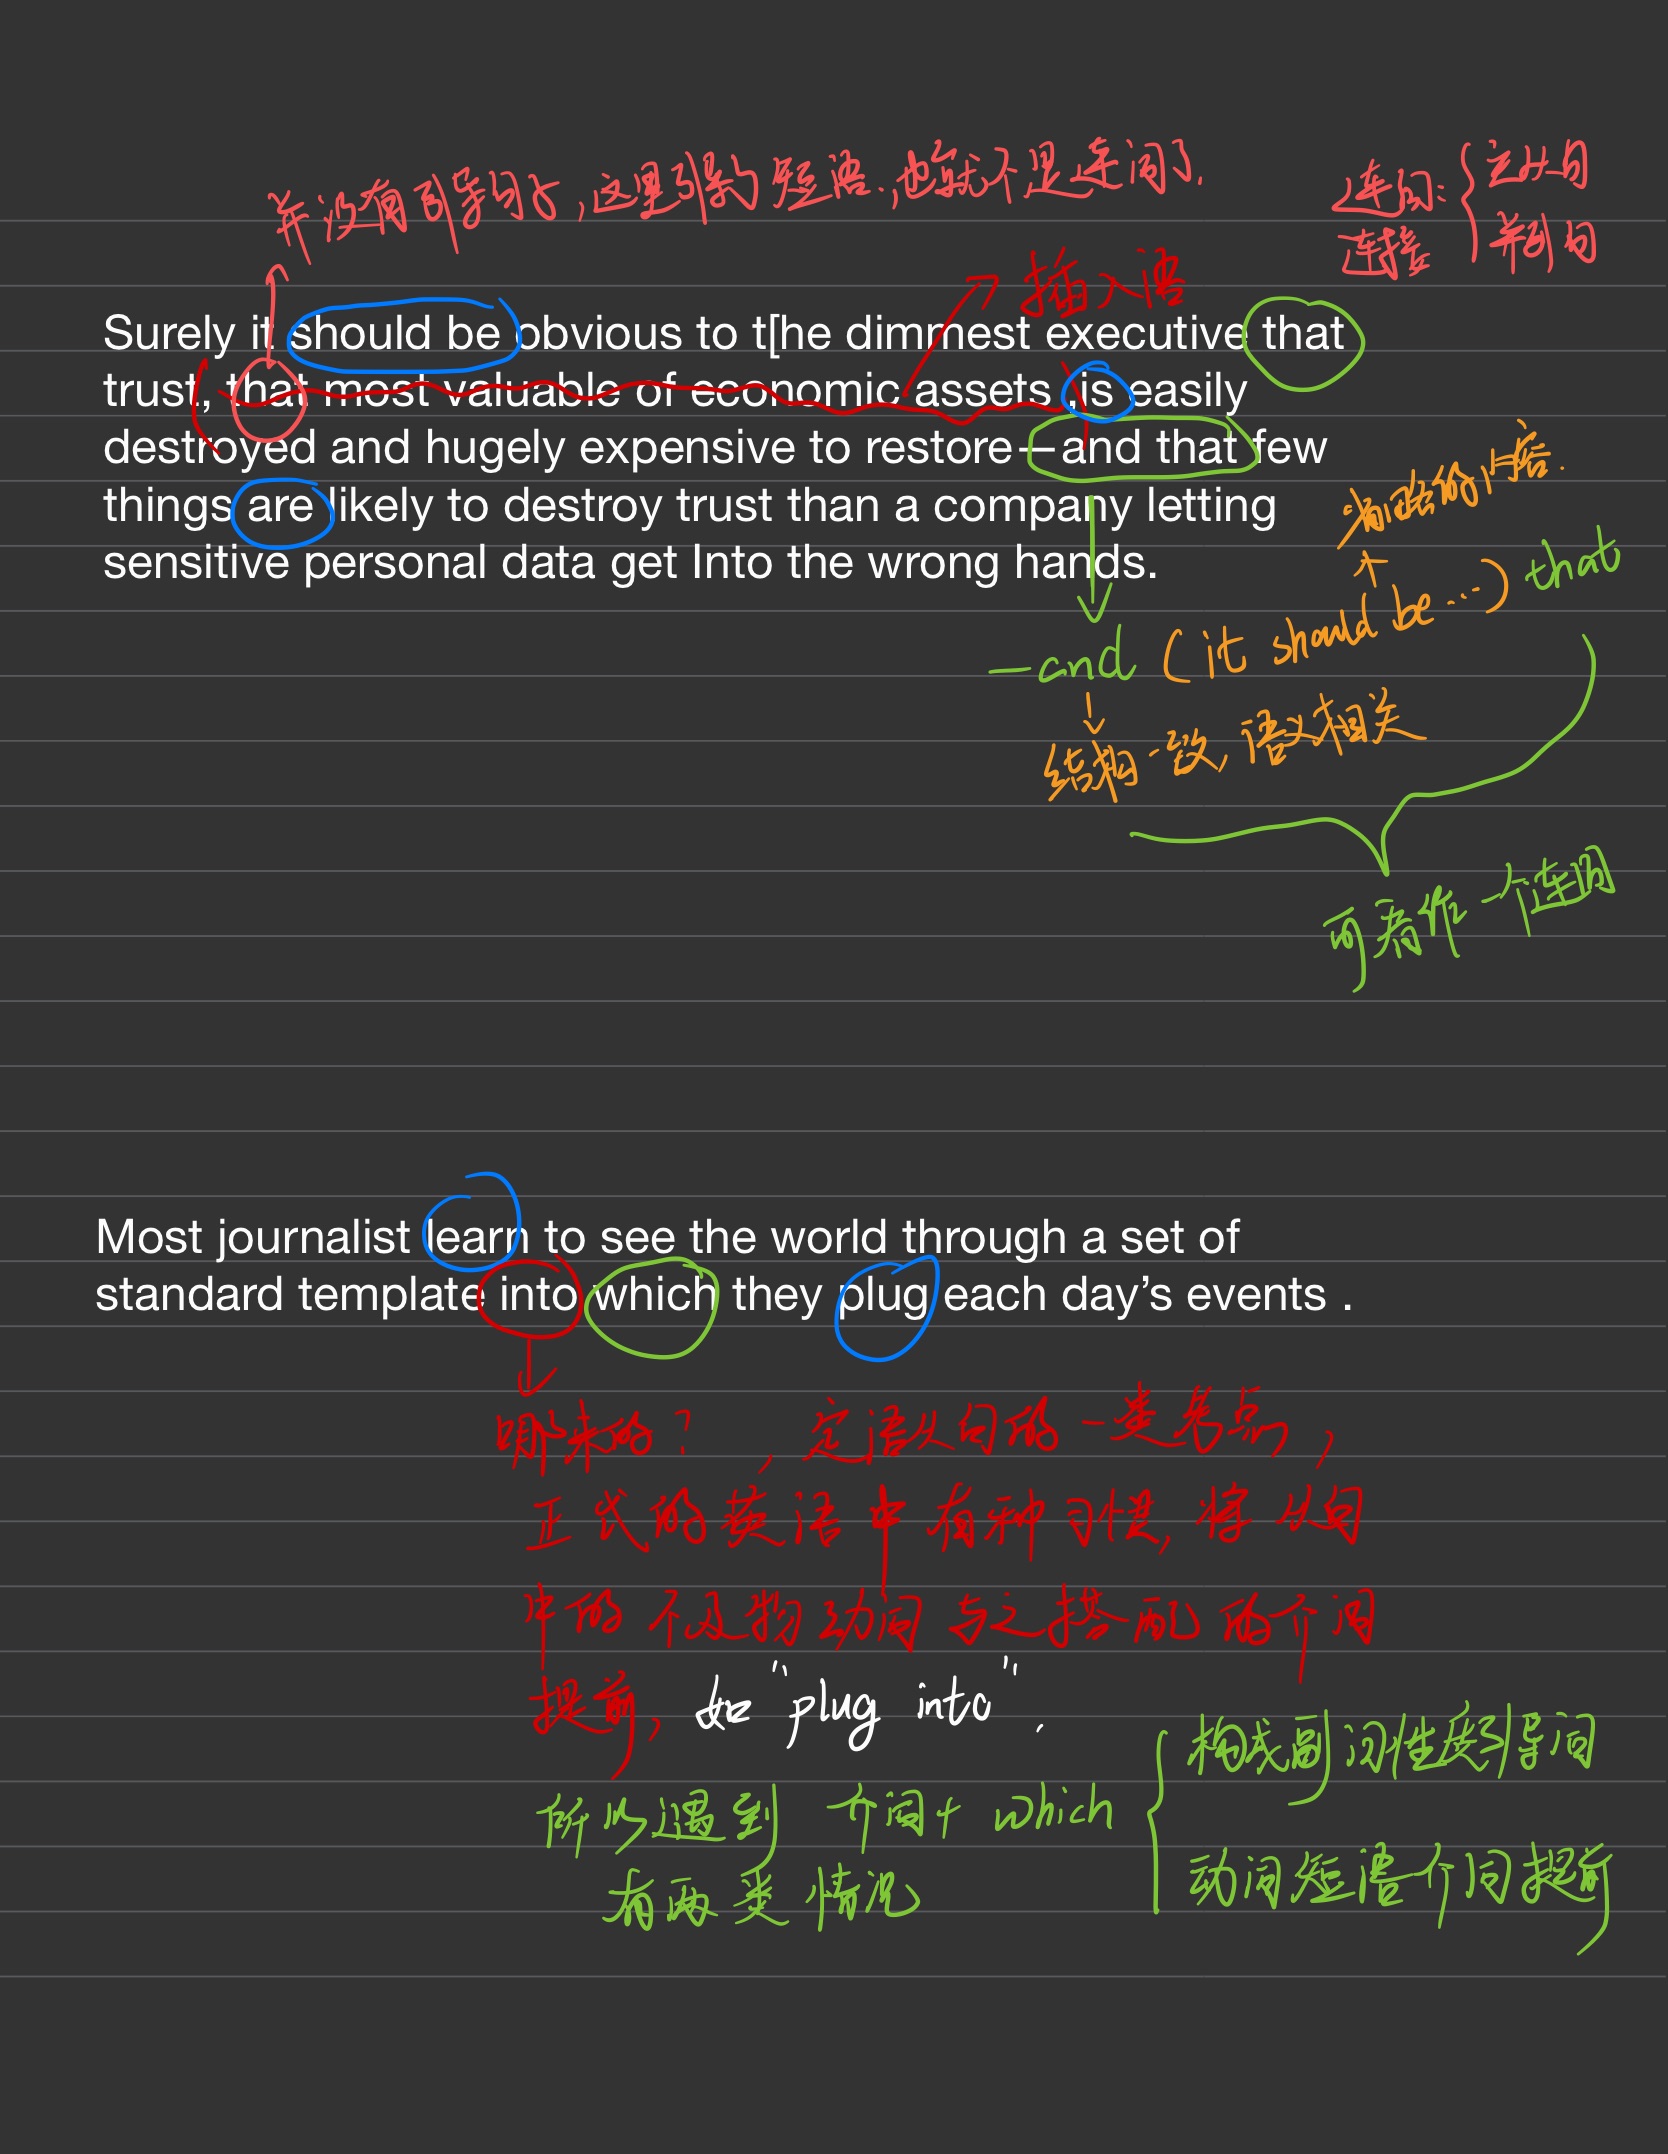 并没有引导句子,这里引导的短语.也就不是连词了.
连词: 主从句
连接 并列句
插入语
Surely it should be obvious to t[he dimmest executive that
trust, that most valuable of economic assets ,is easily
destroyed and hugely expensive to restore—and that few
things are likely to destroy trust than a company letting
sensitive personal data get Into the wrong hands.
省略的内容.
—and (it should be ...) that
结构一致,语义相关
可看作一个连词
Most journalist learn to see the world through a set of
standard template into which they plug each day's events .
哪来的? ,定语从句的一类考点,
正式的英语中有种习惯,将从句
中的不及物动词与之搭配的介词
提前,如"plug into".
构成副词性质引导词
所以遇到 介词+ which
有两类情况
动词短语介词提前